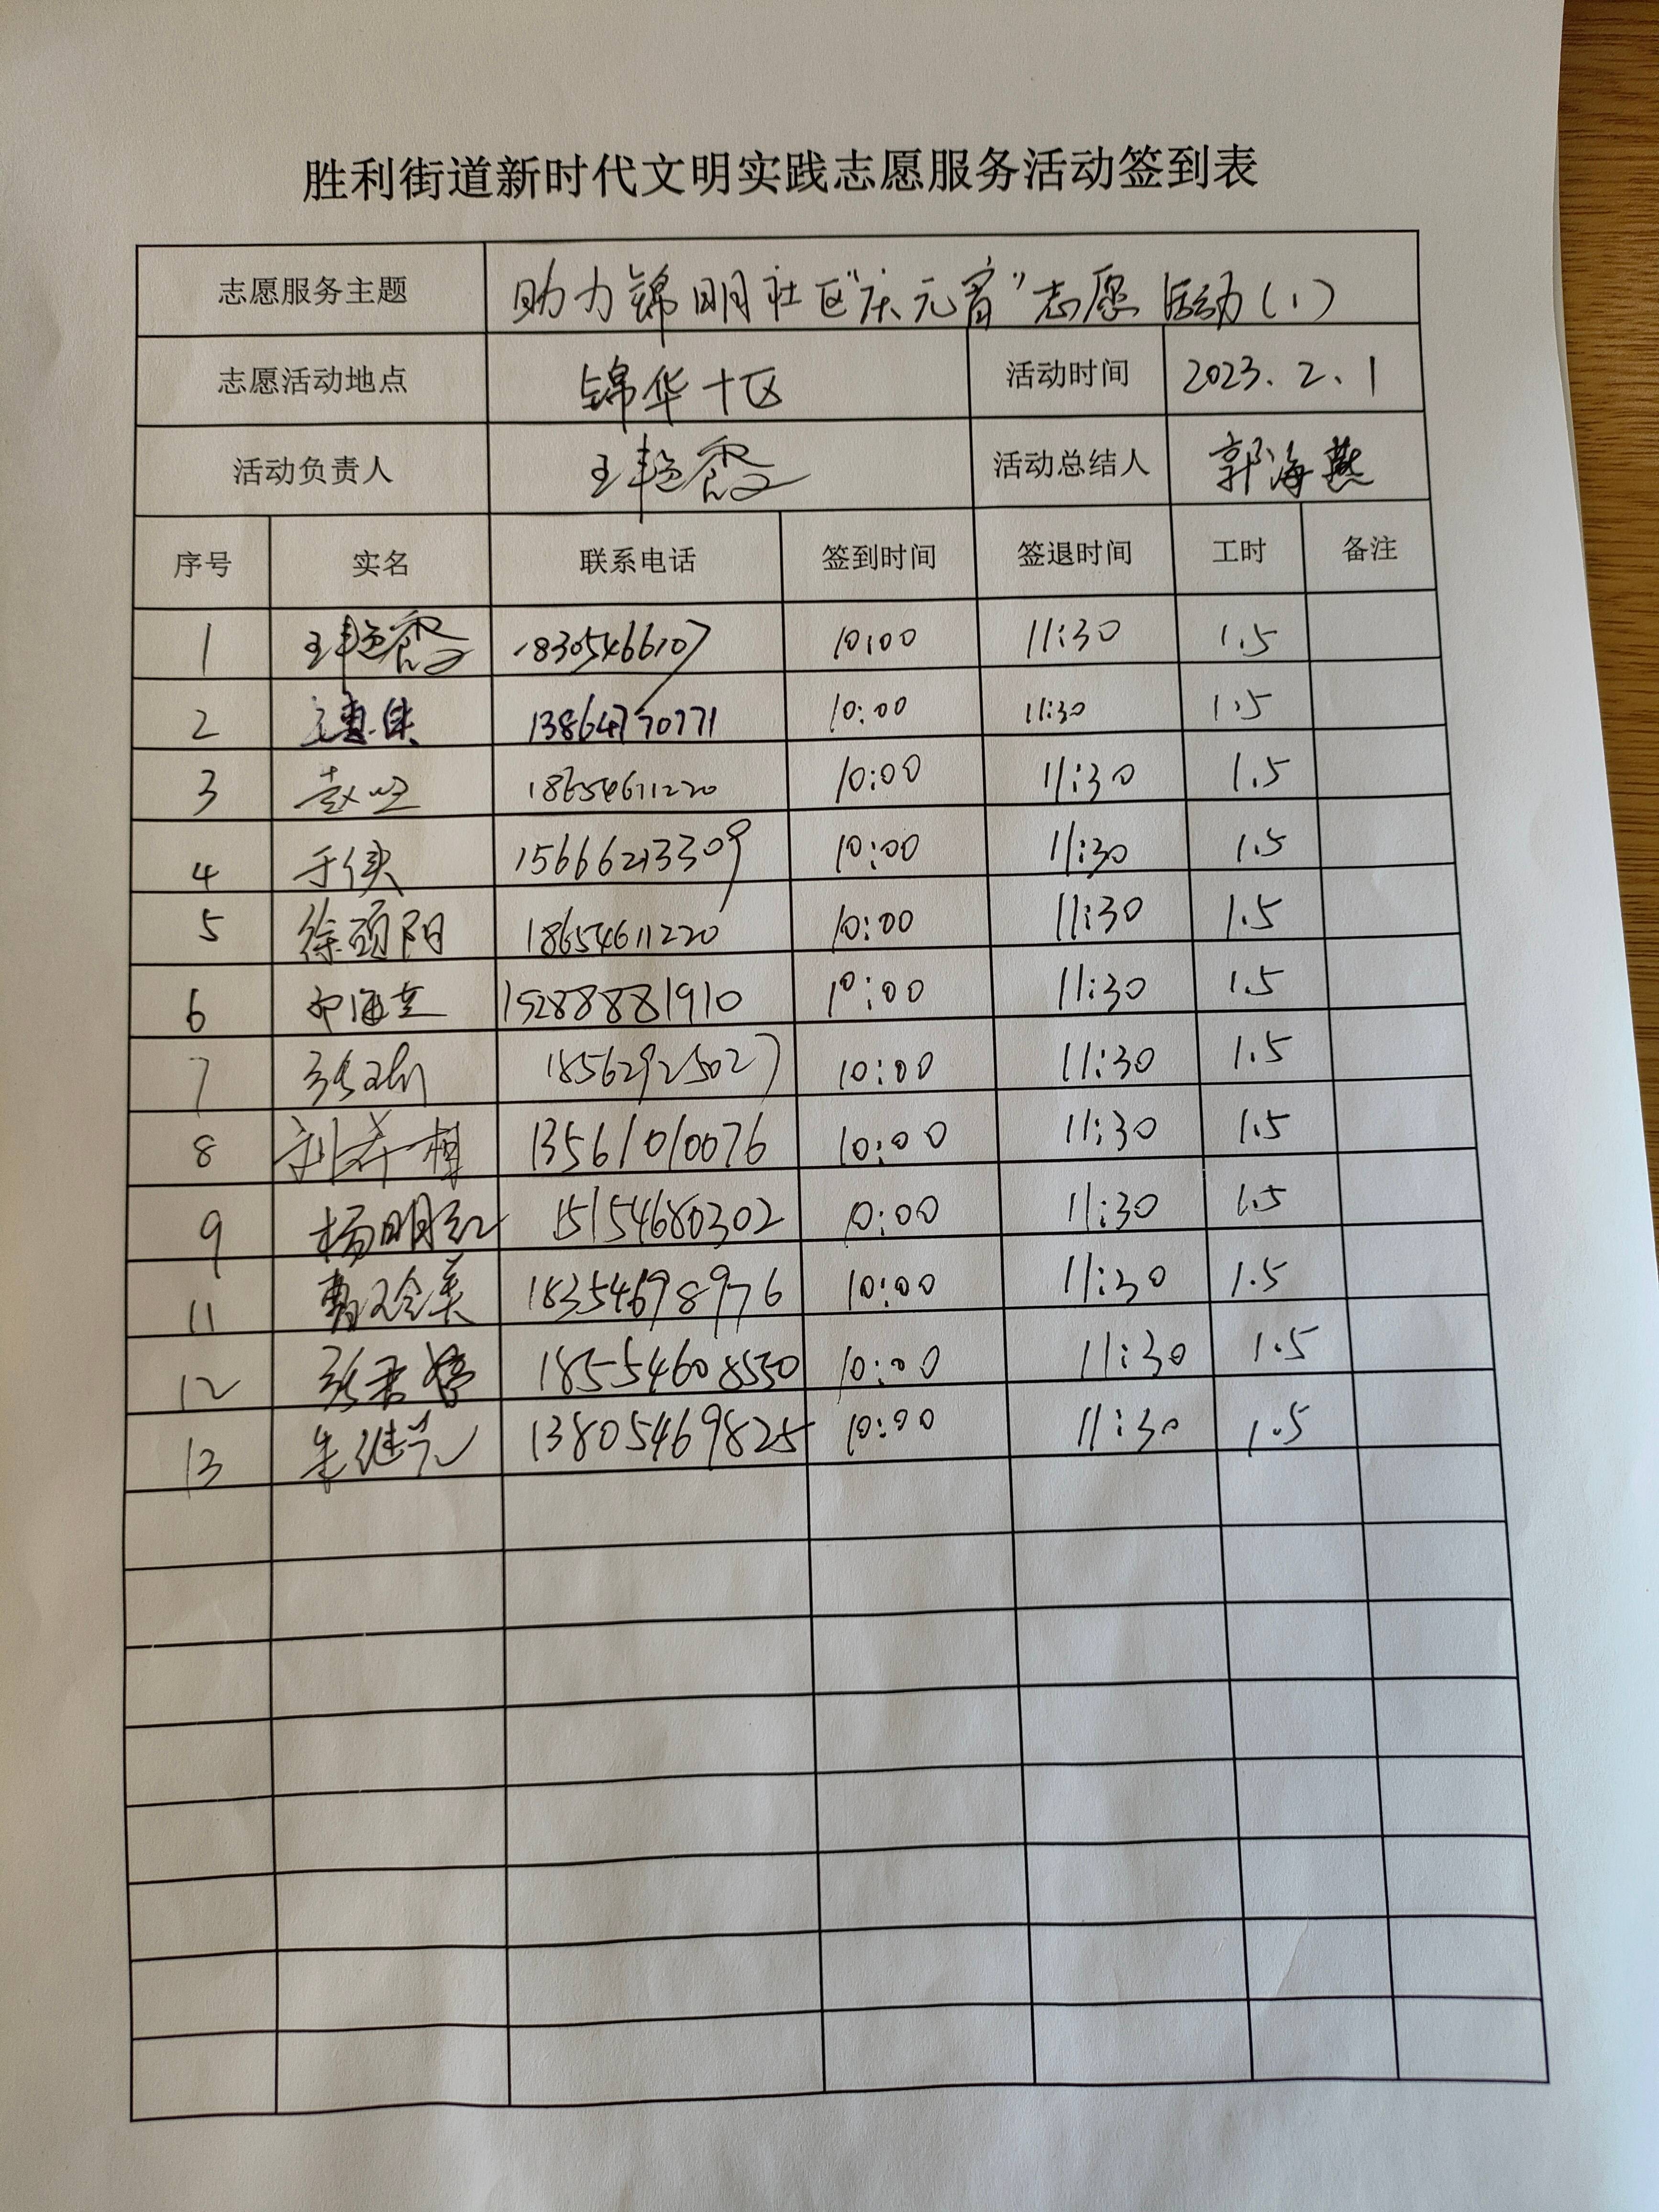 胜利街道新时代文明实践志愿服务活动签到表
志愿服务主题 助力锦明社区"庆元宵"志愿活动(1)
志愿活动地点 锦华十区 活动时间 2023.2.1
活动负责人 王艳霞 活动总结人 郭海燕
序号 实名 联系电话 签到时间 签退时间 工时 备注
1 王艳霞 18305466107 10:00 11:30 1.5
2 13864770771 10:00 11:30 1.5
3 赵 18654611220 10:00 11:30 1.5
4 于侠 15666213309 10:00 11:30 1.5
5 徐硕阳 18654611220 10:00 11:30 1.5
6 15288881910 10:00 11:30 1.5
7 18562925027 10:00 11:30 1.5
8 13561010076 10:00 11:30 1.5
9 杨明红 15154680302 10:00 11:30 1.5
11 18354698976 10:00 11:30 1.5
12 18554608550 10:00 11:30 1.5
13 朱继 13805469825 10:00 11:30 1.5